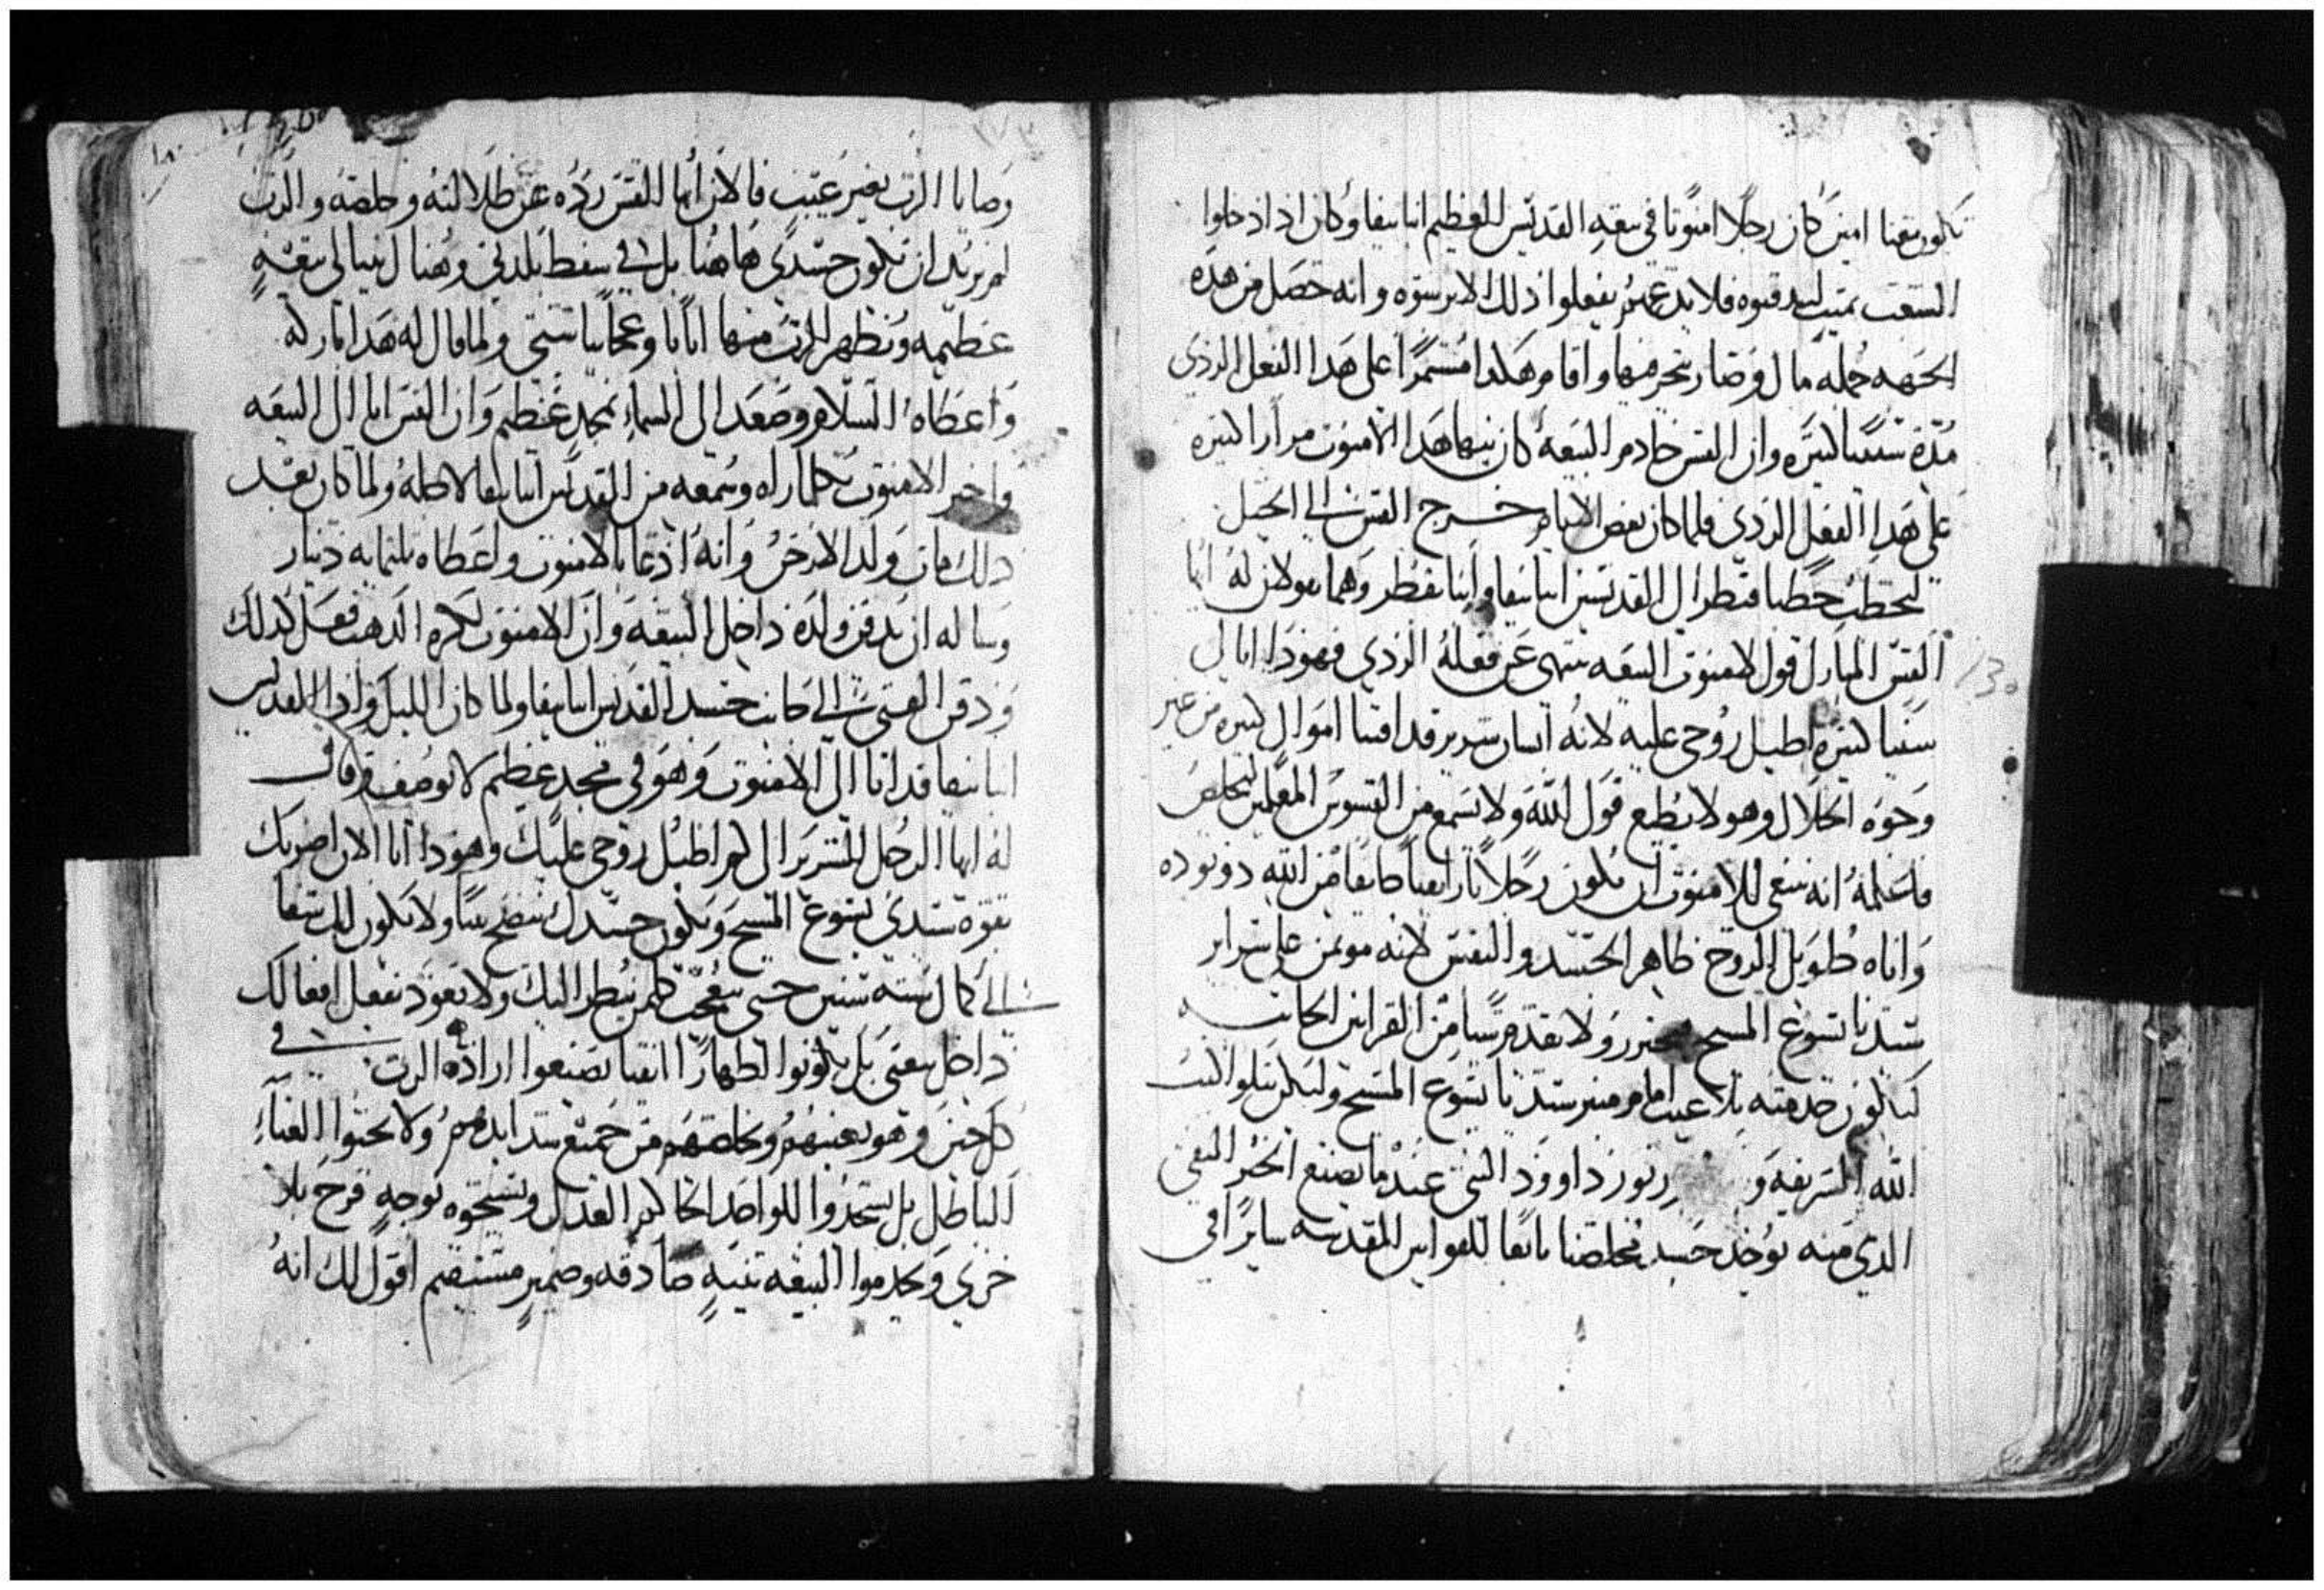 تكون معنا امين كان رجلا امنوتا في بيعه القديس العظيم انبا بيفا وكان اذا ادخلوا
الشعب بميت ليدفنوه فلا يدعهم يفعلوا ذلك الا برشوه وانه حصل من هذه
الجهه جمله مال وصار يتجر منها واقام هكدا مستمرا على هدا الفعل الردي
مدة سنينا كثيره وان القس خادم البيعه كان ينهاهدا الامنوت مرارا كثيره
على هدا الفعل الردي فلما كان بعض الايام خرج القس الى الجبل
ليحتطب حطبا فنظر الى القديسين انبا بيفا وانبا وهما يقولان له ايها
القس المبارك قول لامنوت البيعه ينتهي عن فعله الردي فهودا انا لي
سنينا كثيره اطيل روحي عليه لانه انسان شرير قد اقتنا اموال كثيره من غير
وجوه الحلال وهو لا يطيع قول الله ولا يسمع من القسوس المعلمين ليخلص
فاعلمه انه ينبغي للامنوت ان يكون رجلا بارا نقيا خايفا من الله دو توده
واناه طويل الروح طاهر الجسد والنفس لانه موتمن على سراير
سيدنا يسوع المسيح ولا يقدم شيا من القرابين
ليكون خدمته بلا عيب امام منبر سيدنا يسوع المسيح وليكن يتلوا
الله الشريفه و داوود النبي عندما يصنع الخبز النقي
الدي منه يوخد جسد مخلصنا تابعا للقوانين المقدسه سايرا في
وصايا الرب بغير عيب فالان أيها القس رده عن طلالته وخلصه والرب
لم يريد ان تكون جسدي هاهنا بل في سفط بلدتي وهناك يبنا لي بيعه
عظيمه ويظهر الرب منها اياتا وعجايبا شتى ولما قال له هدا باركه
واعطاه السلام وصعد الى السماء بمجد عظيم وان القس اتا الى البيعه
واخبر الامنوت بكلما راه وسمعه من القديس انبا بيفا ولما كان بعد
دلك مات ولد الارخن وانه ادعا بالامنوت واعطاه تلتمايه دينار
وساله ان يدفن ولده داخل البيعه وان الامنوت لكثره الدهب فعل كدلك
ودفن الفتى الى جانب جسد القديس انبا بيفا ولما كان الليل وادا القديس
انبا بيفا قد اتا الى الامنوت وهو في مجد عظيم لا يوصف وقال
له ايها الرجل الشرير الى كم اطيل روحي عليك وهودا انا الان اضربك
بقوة سيدي يسوع المسيح ويكون جسدك ولا يكون لك شفا
الى كمال سته سنين حتى يتعجب كلمن ينظر اليك ولا تعود تفعل افعالك
داخل بيعتي بل تكونوا اطهارا انقيا تصنعوا اراده الرب في
كل حين وهو يعينهم ويخلصهم من جميع شدايدهم ولا تحبوا الغناء
الباطل بل تسجدوا للواحد الحاكم العدل وتسبحوه بوجه فرح بلا
خزي وتخدموا البيعه بنيه صادقه وضمير مستقيم اقول لك انه